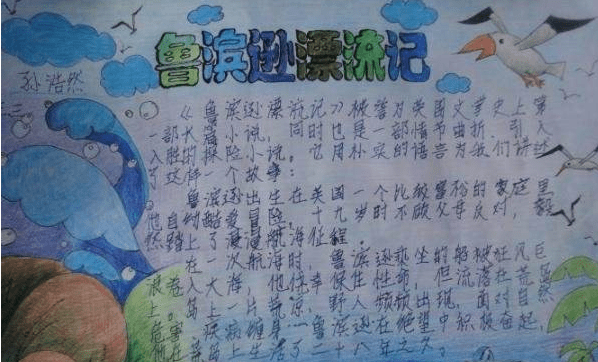 鲁滨逊漂流记
孙浩然
《鲁滨逊漂流记》被誉为英国文学史上第
一部长篇小说，同时也是一部情节曲折、引人
入胜的探险小说。它用朴实的语言为我们讲述
了这样一个故事：
鲁滨逊出生在英国一个比较富裕的家庭里
他自幼酷爱冒险，十九岁时不顾父母反对，毅
然踏上了漫漫航海征程。
在一次航海时，鲁滨逊乘坐的船被狂风巨
浪卷入大海，他侥幸保住性命，但流落在荒
岛上一片荒凉，野人频频出现，面对自然
危害疾病缠身…鲁滨逊在绝望中积极奋起，
他在荒岛生活了二十八年之久。